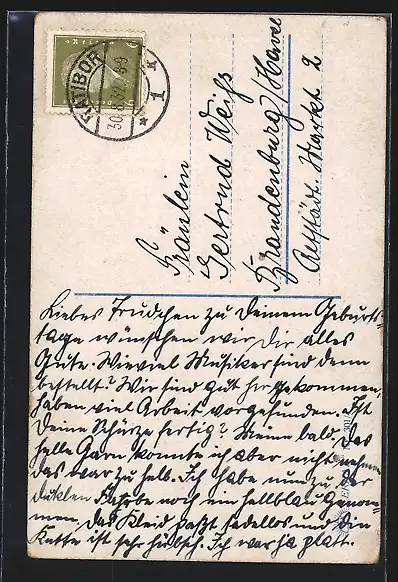 RATIBOR
30.8.32.
* 1
Fräulein
Gertrud Weiß
Brandenburg/Havel
Altstädt. Markt 2
Liebes Trudchen zu Deinem Geburts-
tage wünschen wir Dir alles
Gute. Wieviel Musiker sind denn
bestellt? Wir sind gut hergekommen,
haben viel Arbeit vorgefunden. Ist
Deine Schürze fertig? Meine bald. Das
helle Garn konnte ich aber nicht nehmen
das war zu helb. Ich habe nun zu der
duklen Farbe noch ein hellblau genom-
men. Das Kleid paßt tadellos und die
Kette ist sehr hübsch. Ich war ja platt.